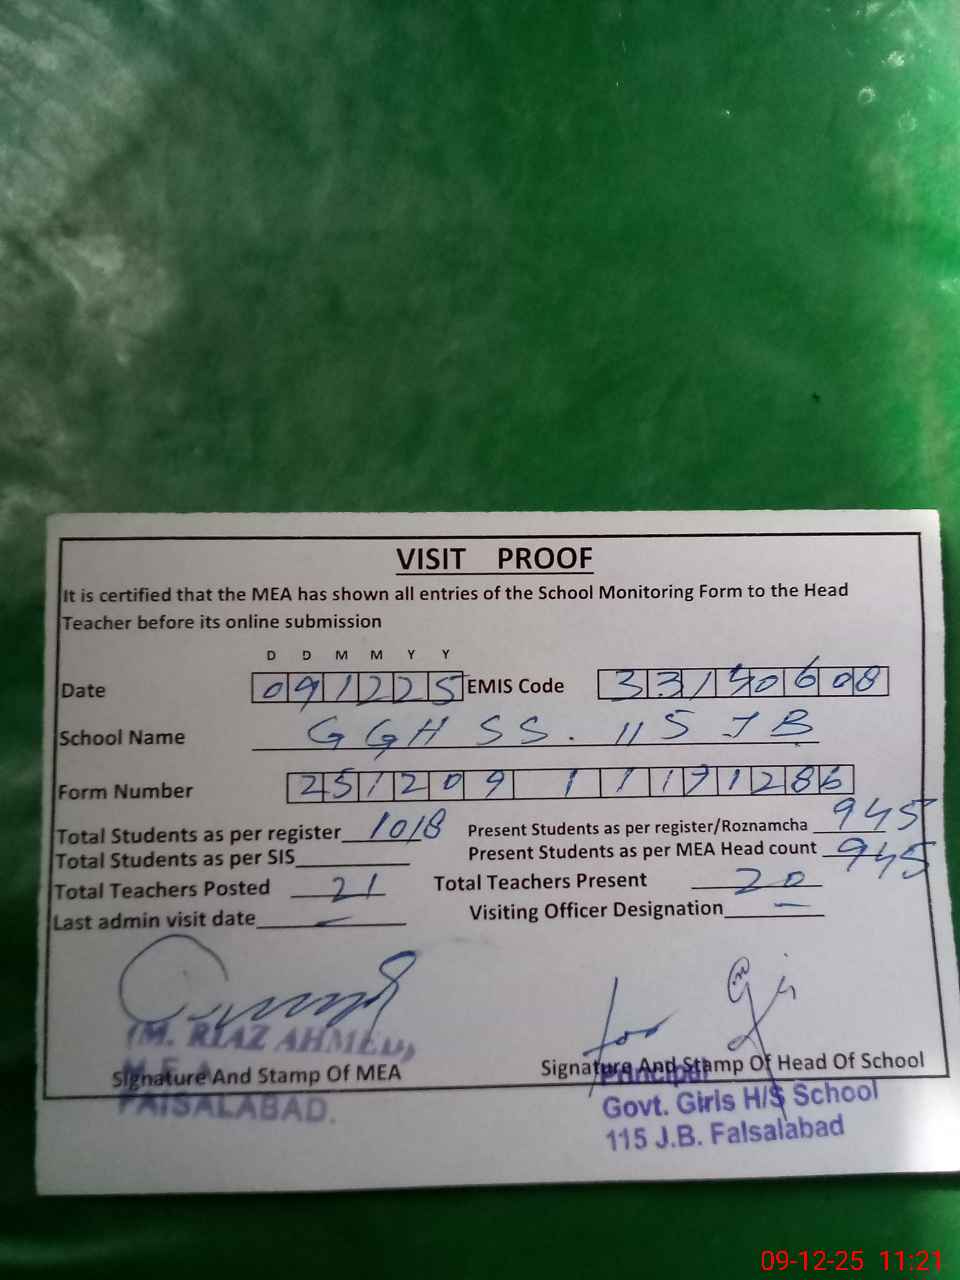 VISIT PROOF
It is certified that the MEA has shown all entries of the School Monitoring Form to the Head
Teacher before its online submission
D D M M Y Y
Date 091225 EMIS Code 33130608
School Name GGHSS. 115 JB
Form Number 251209 1 1171286
Total Students as per register 1018 Present Students as per register/Roznamcha 945
Total Students as per SIS Present Students as per MEA Head count 945
Total Teachers Posted 21 Total Teachers Present 20
Last admin visit date — Visiting Officer Designation —
for
(M. RIAZ AHMED)
M.E.A
Signature And Stamp Of MEA Signature And Stamp Of Head Of School
FAISALABAD.
Principal
Govt. Girls H/S School
115 J.B. Faisalabad
09-12-25 11:21